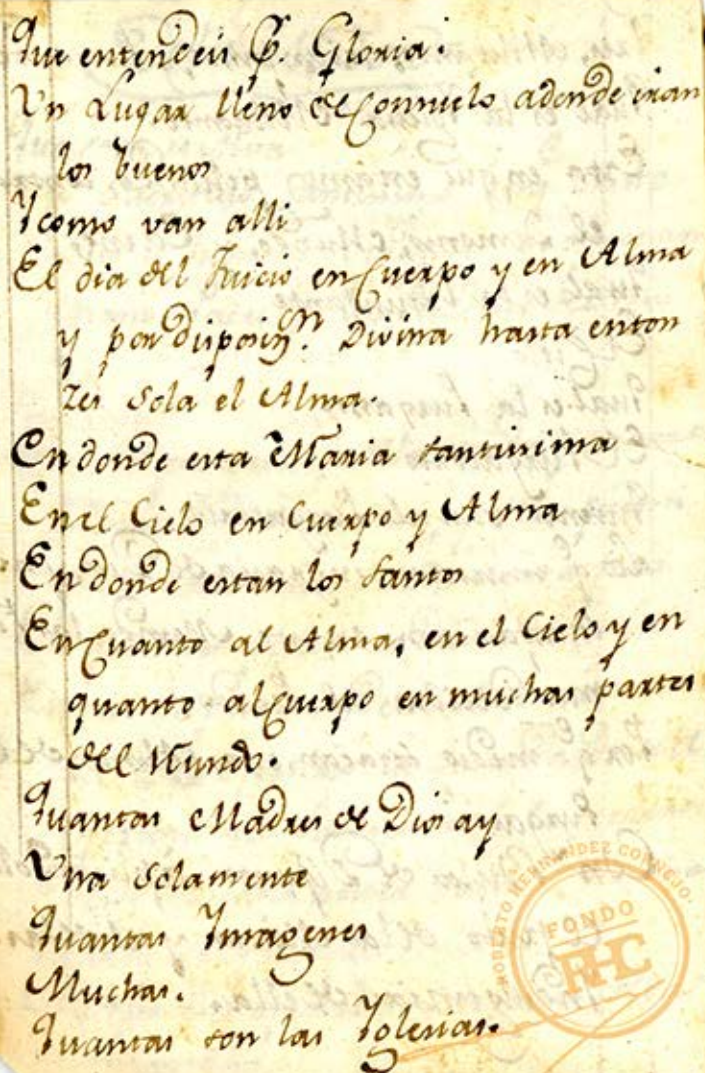 Que entendeis P. Gloria.
Vn Lugar lleno de Consuelo adonde iran
los buenos
Y como van alli
El dia del Juicio en Cuerpo y en Alma
y por disposiçon. Divina hasta enton
zes sola el Alma.
En donde esta Maria santissima
En el Cielo en Cuerpo y Alma
En donde estan los santos
En Quanto al Alma, en el Cielo y en
quanto al Cuerpo en muchas partes
del Mundo.
Quantas Madres de Dios ay
Vna Solamente
Quantas Imagenes
Muchas.
Quantas son las Iglesias.
ROBERTO HERNANDEZ CORNEJO.
FONDO
RHC